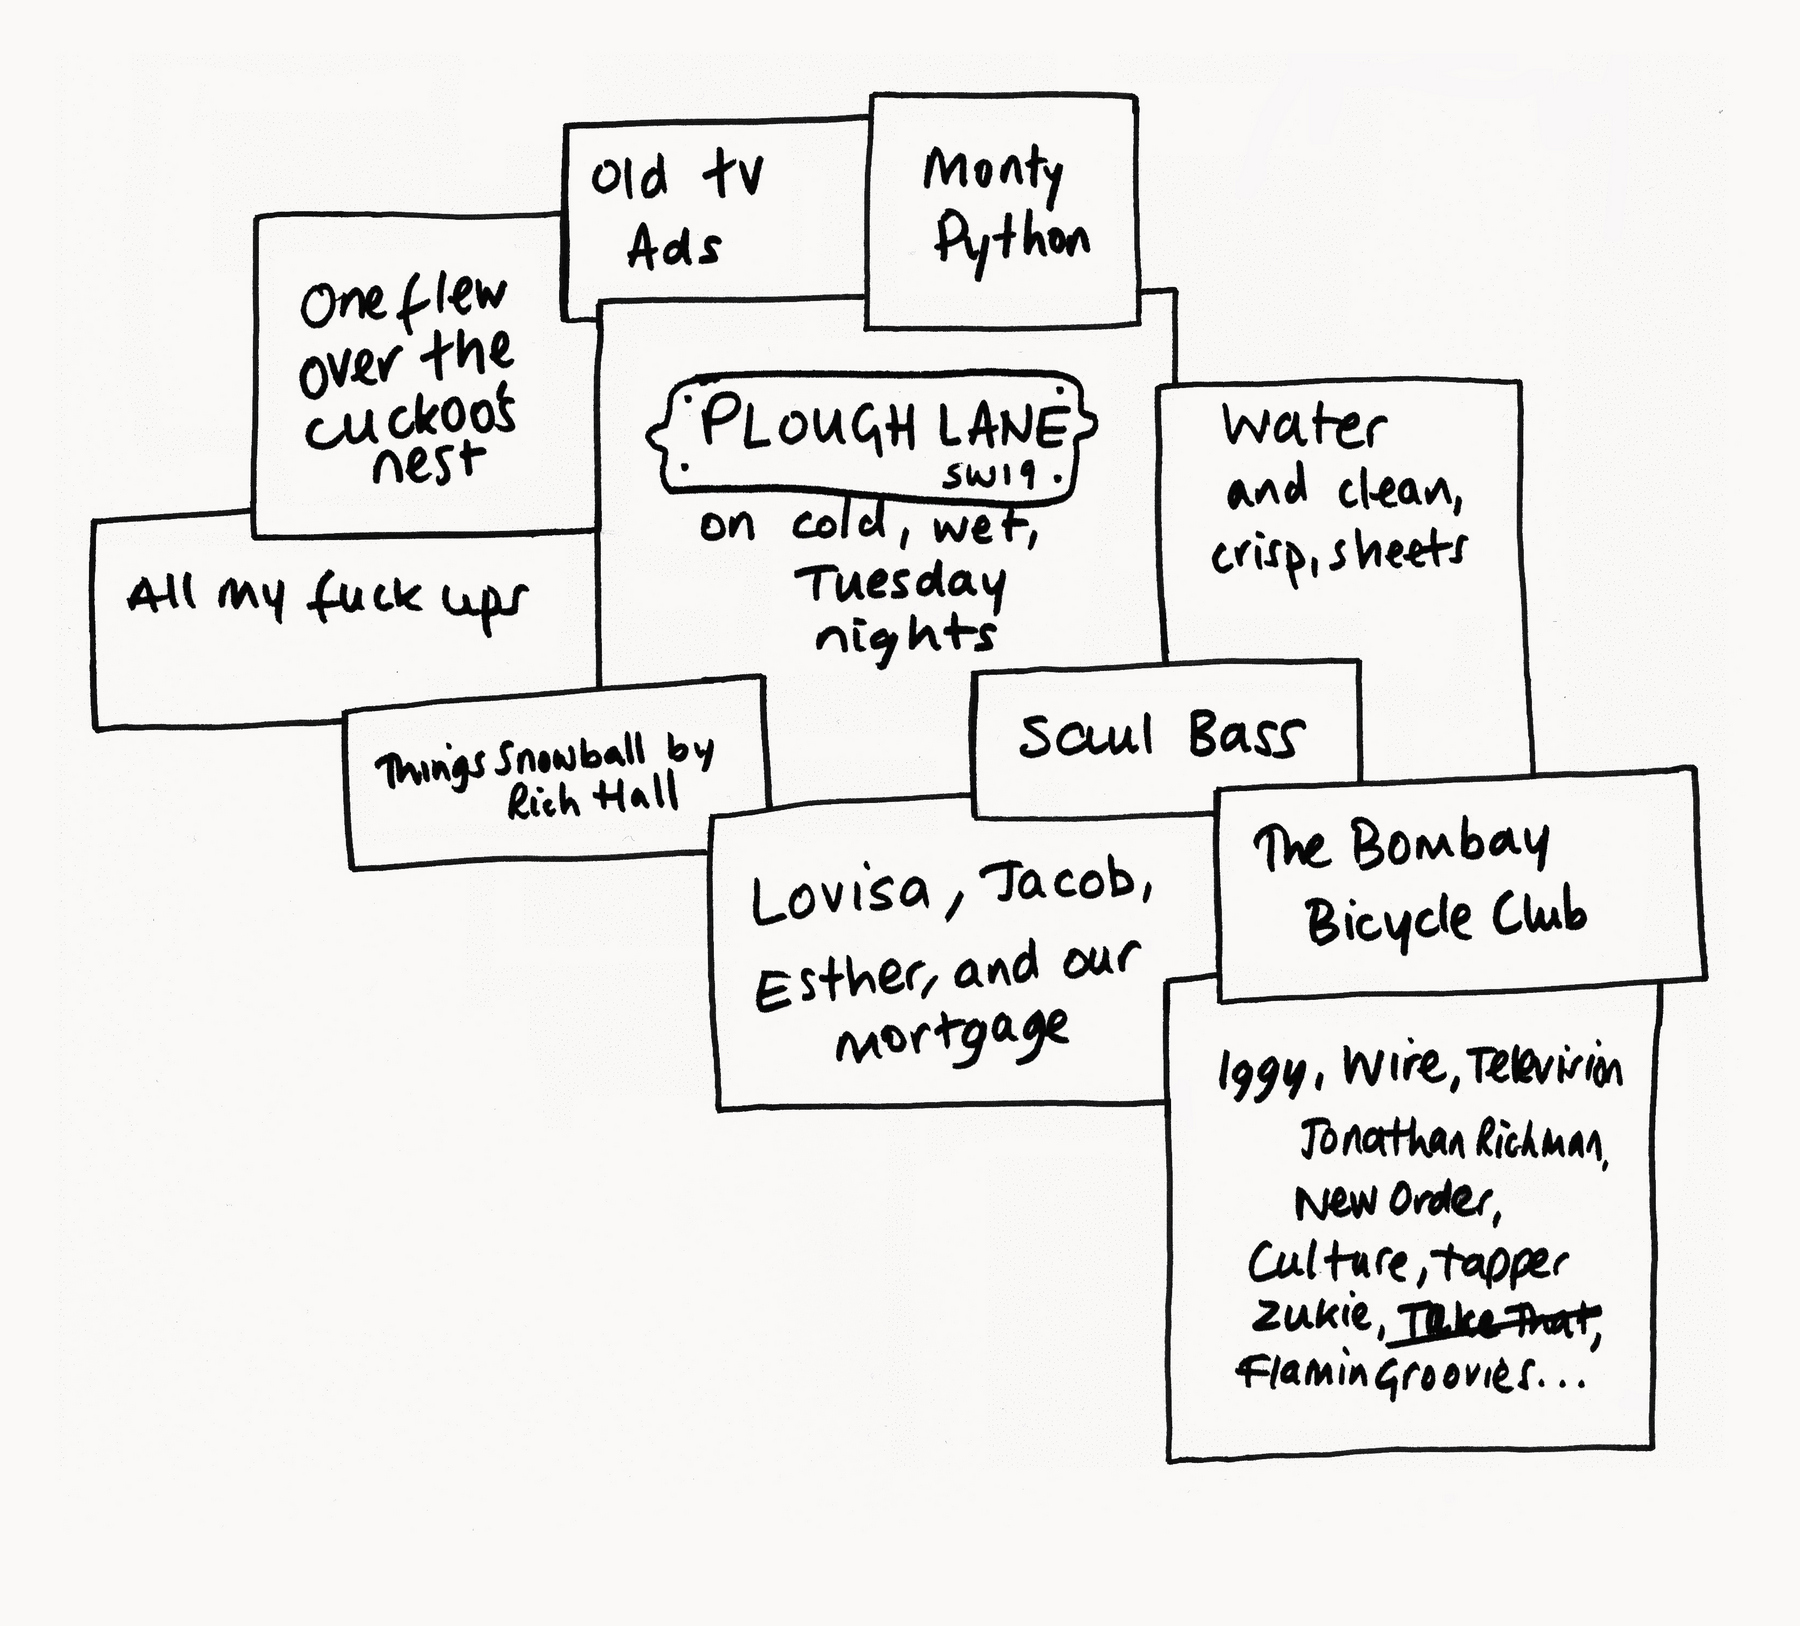 Old tv
Ads
Monty
Python
One flew
over the
cuckoo's
nest
PLOUGH LANE
SW19
on cold, wet,
Tuesday
nights
Water
and clean,
crisp, sheets
All my fuck ups
Things Snowball by
Rich Hall
Saul Bass
The Bombay
Bicycle Club
Lovisa, Jacob,
Esther, and our
mortgage
Iggy, Wire, Television
Jonathan Richman,
New Order,
Culture, tapper
Zukie, Take That,
Flamin Groovies...